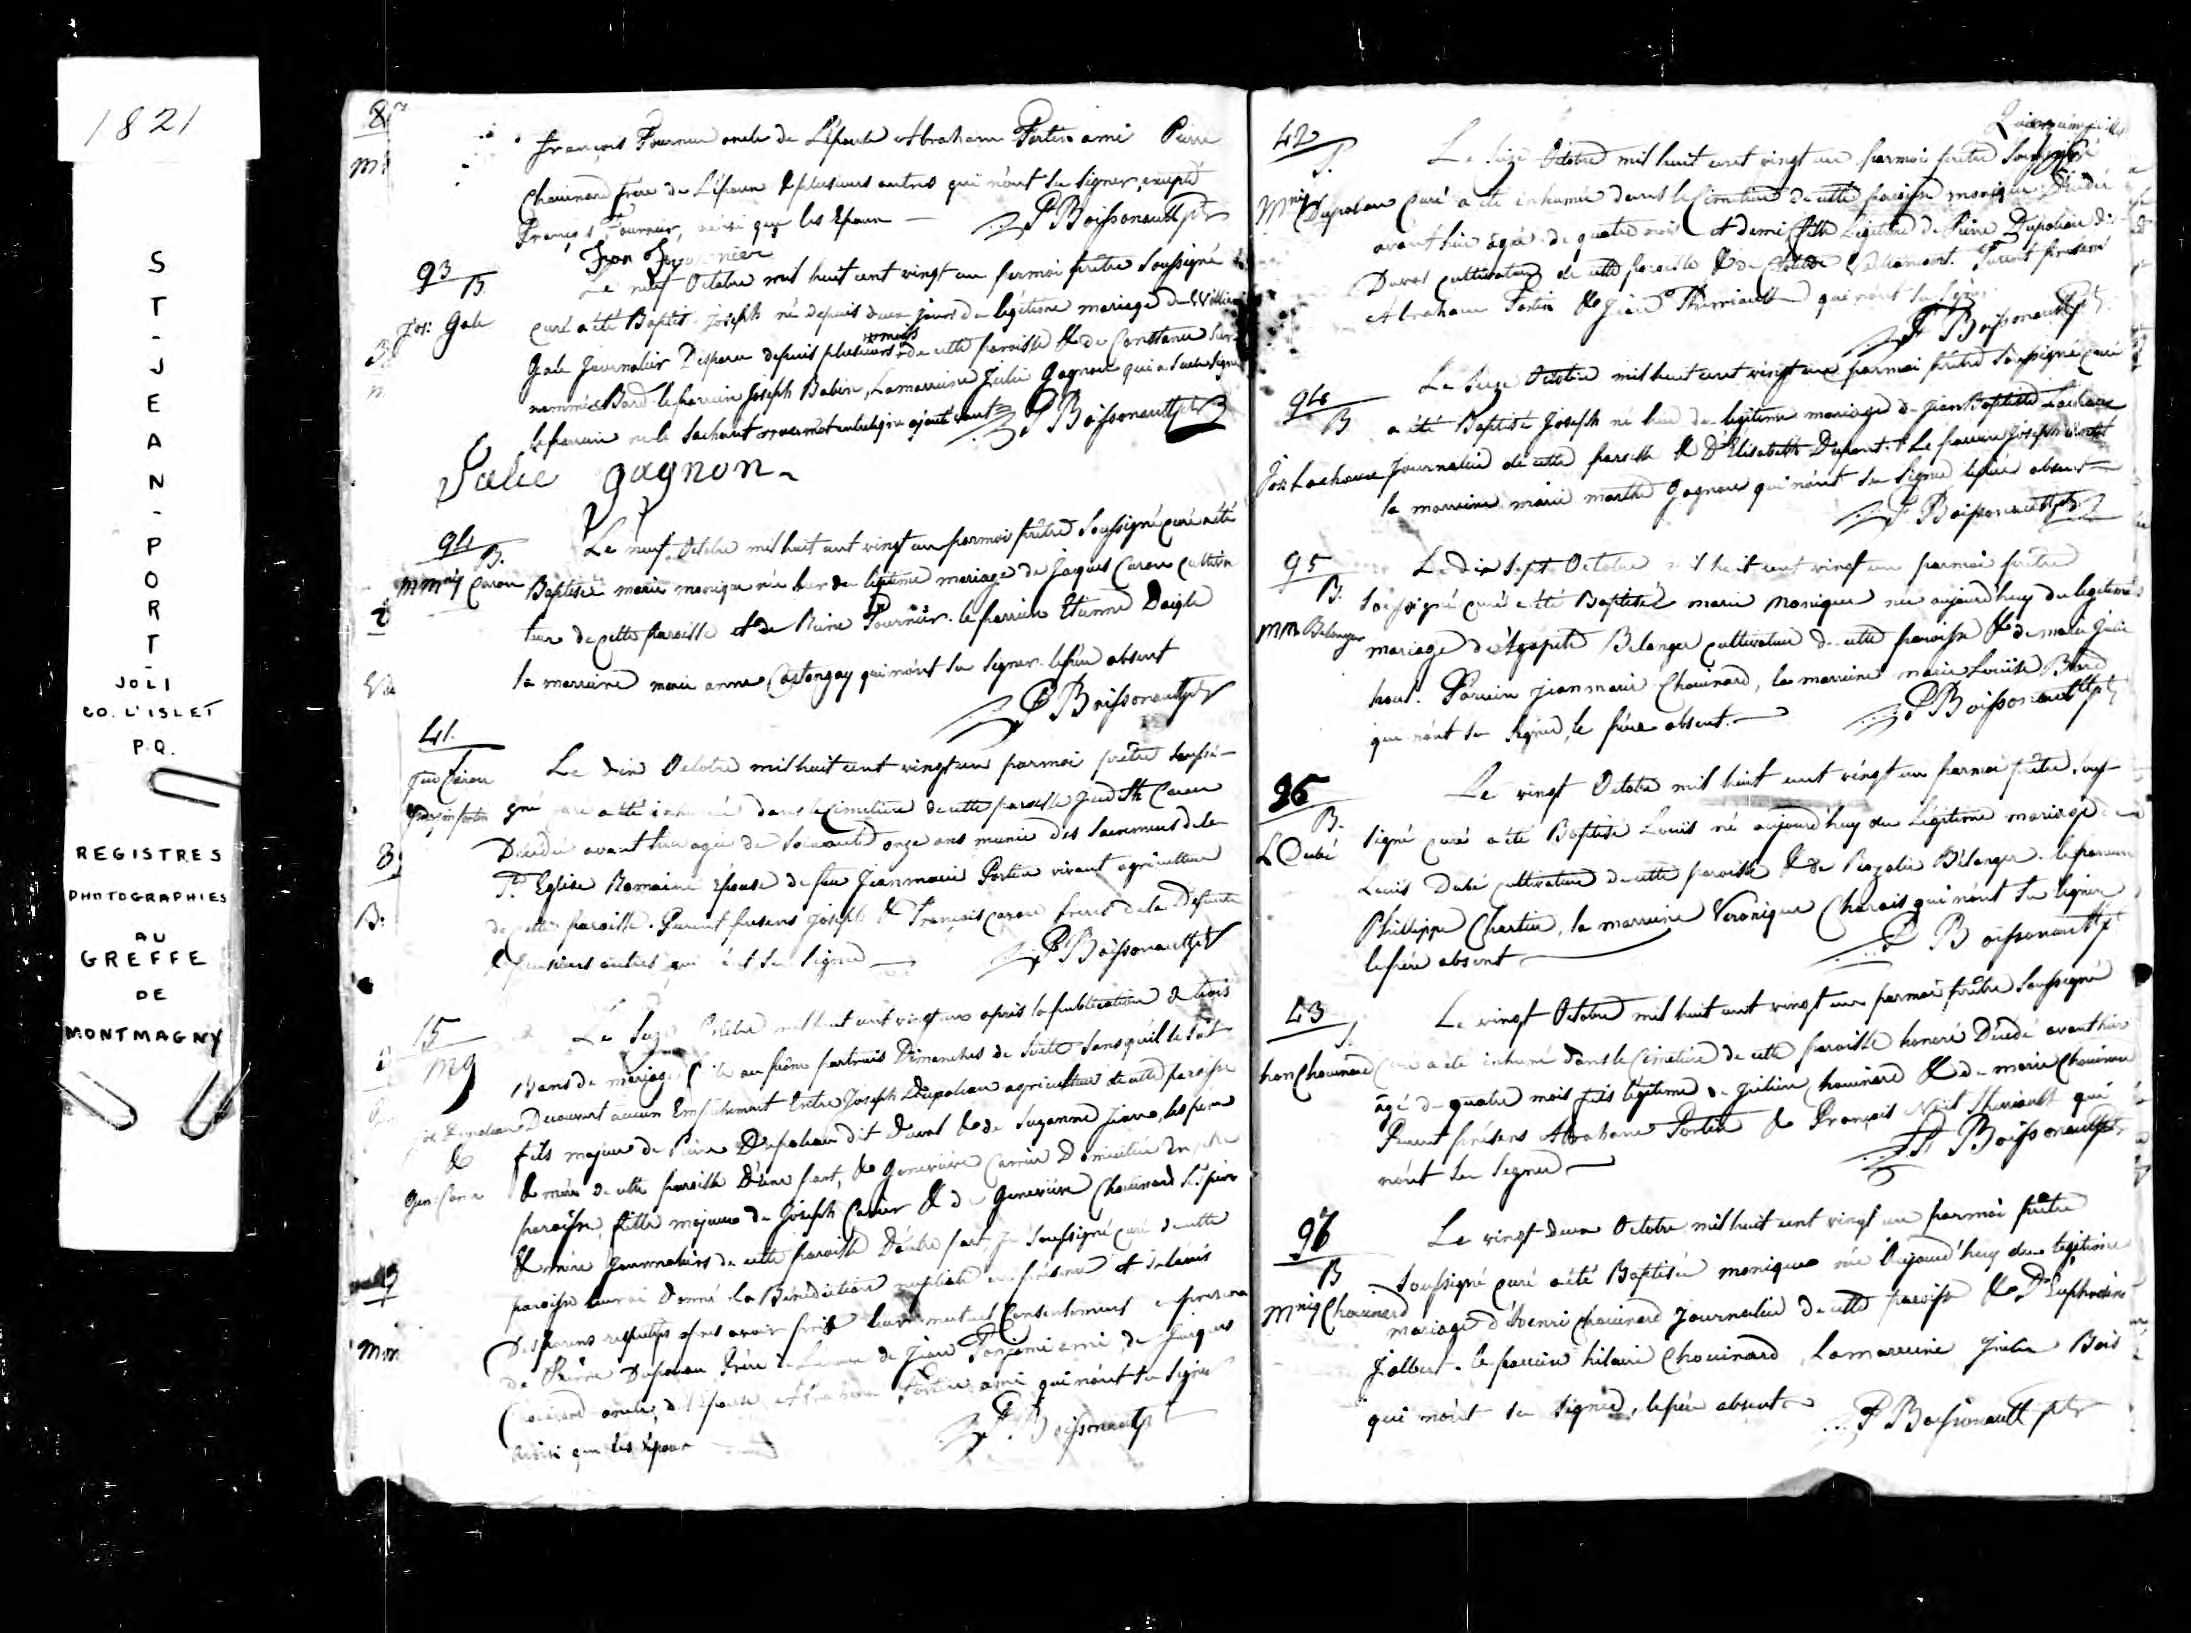 1821
ST-JEAN-PORT-
JOLI
CO. L'ISLET
P.Q.
REGISTRES
PHOTOGRAPHIES
AU
GREFFE
DE
MONTMAGNY
François Fournier oncle de L'épouse Abraham Fortin ami Pierre
Chouinard frere de L'épouse & plusieurs autres qui n'ont su signer, excepté
François Fournier, ainsi que les Epoux
P Boissonnault ptr
Fran Fournier
93
B.
Jos: Gale
Le neuf Octobre mil huit cent vingt un par moi prêtre Soussigné
curé a été Baptisé Joseph né depuis deux jours du légitime mariage de William
Gale Journalier Disparu depuis plusieurs mois de cette paroisse & de Constance
nommée Bard le parrain Joseph Babin, La marraine Julie Gagnon qui a seule signé
le parrain ne le sachant
P Boissonnault ptr
Julie gagnon
94
B.
M Mniq Caron
Le neuf Octobre mil huit cent vingt un par moi prêtre Soussigné curé a été
Baptisée marie monique née hier du légitime mariage de Jaques Caron cultiva
teur de cette paroisse et de Reine Fournier. le parrain Etienne Daigle
la marraine marie anne Castongay qui n'ont su signer. le père absent
P Boissonnault ptr
41.
S
Jud Caron
Le dix Octobre mil huit cent vingt un par moi prêtre Soussi-
gné curé a été inhumée dans le Cimetière de cette paroisse Judith Caron
Décédée avant hier agée de Soixante onze ans munie des Sacremens de la
Ste Eglise Romaine épouse de feu Jean marie Fortin vivant agriculteur
de cette paroisse. Furent presens Joseph & François Caron freres de la Defunte
& plusieurs autres qui n'ont su signer
P Boissonnault ptr
15
Mg
Jos Dupoleau
&
Gen Carier
Le Seize Octobre mil huit cent vingt un après la publication de trois
Bans de mariage faite au prône par trois Dimanches de Suite sans qu'il se soit
Decouvert aucun Empêchement Entre Joseph Dupoleau agriculteur de cette paroisse
fils majeur de Pierre Dupoleau dit Duval & de Suzanne les père
& mère de cette paroisse D'une part, & Geneviève Carier Domiciliée en cette
paroisse, fille majeure de Joseph Carier & de Geneviève Chouinard Ses père
& mère Journaliers de cette paroisse D'autre part, Je Soussigné curé de cette
paroisse leur ai donné la Bénédiction nuptiale en présence et de l'avis
Des parens respectifs après avoir pris leur mutuel Consentement en presence
de Pierre Dupoleau frère de L'époux de Jean ami de Jacques
Chouinard oncle de l'épouse Abraham Fortin ami qui n'ont su signer
ainsi que les époux
P Boissonnault ptr
42
S.
Mniq Dupoleau
Le Seize Octobre mil huit cent vingt un par moi prêtre Soussigné
Curé a été inhumée dans le Cimetière de cette paroisse monique Décédée
avant hier agée de quatre mois et demi fille Légitime de Pierre Dupoleau dit
Duval cultivateur de cette paroisse & de Furent presens
Abraham Fortin & Jean Theriault qui n'ont su signer
P Boissonnault ptr
94
B
Jos: Lachance
Le Seize Octobre mil huit cent vingt un par moi prêtre Soussigné curé
a été Baptisé Joseph né hier du légitime mariage de Jean Baptiste Lachance
Journalier de cette paroisse & D'Elisabeth Dupont. Le parrain Joseph
la marraine marie marthe Gagnon qui n'ont su signer le père absent
P Boissonnault ptr
95
B.
M M. Belanger
Le dix Sept Octobre mil huit cent vingt un par moi prêtre
Soussigné curé a été Baptisée marie monique née aujourd'huy du legitime
mariage d'Agapite Belanger cultivateur de cette paroisse & de marie
Parrain Jean marie Chouinard, la marraine marie Louise Bard
qui n'ont su signer, le père absent.
P Boissonnault ptr
96
B.
L Dubé
Le vingt Octobre mil huit cent vingt un par moi prêtre sous-
signé curé a été Baptisé Louis né aujourd'huy du Légitime mariage de
Louis Dubé cultivateur de cette paroisse & de Rozalie Bélanger. le parrain
Philippe Chartier, la marraine Véronique Charois qui n'ont su signer
le père absent
P Boissonnault ptr
43
S.
hon Chouinard
Le vingt Octobre mil huit cent vingt un par moi prêtre Soussigné
Curé a été inhumé dans le Cimetière de cette paroisse honoré Décédé avant hier
agé de quatre mois fils légitime de Julien Chouinard & de marie Chouinard
Furent présens Abraham Fortin & François Noël Theriault qui
n'ont su signer
P Boissonnault ptr
97
B
Mniq Chouinard
Le vingt-Deux Octobre mil huit cent vingt un par moi prêtre
Soussigné curé a été Baptisée monique née aujourd'huy du légitime
mariage d'henri Chouinard Journalier de cette paroisse & D'Euphrosine
Jalbert. le parrain hilaire Chouinard La marraine Julie Bois
qui n'ont su signer, le père absent
P Boissonnault ptr